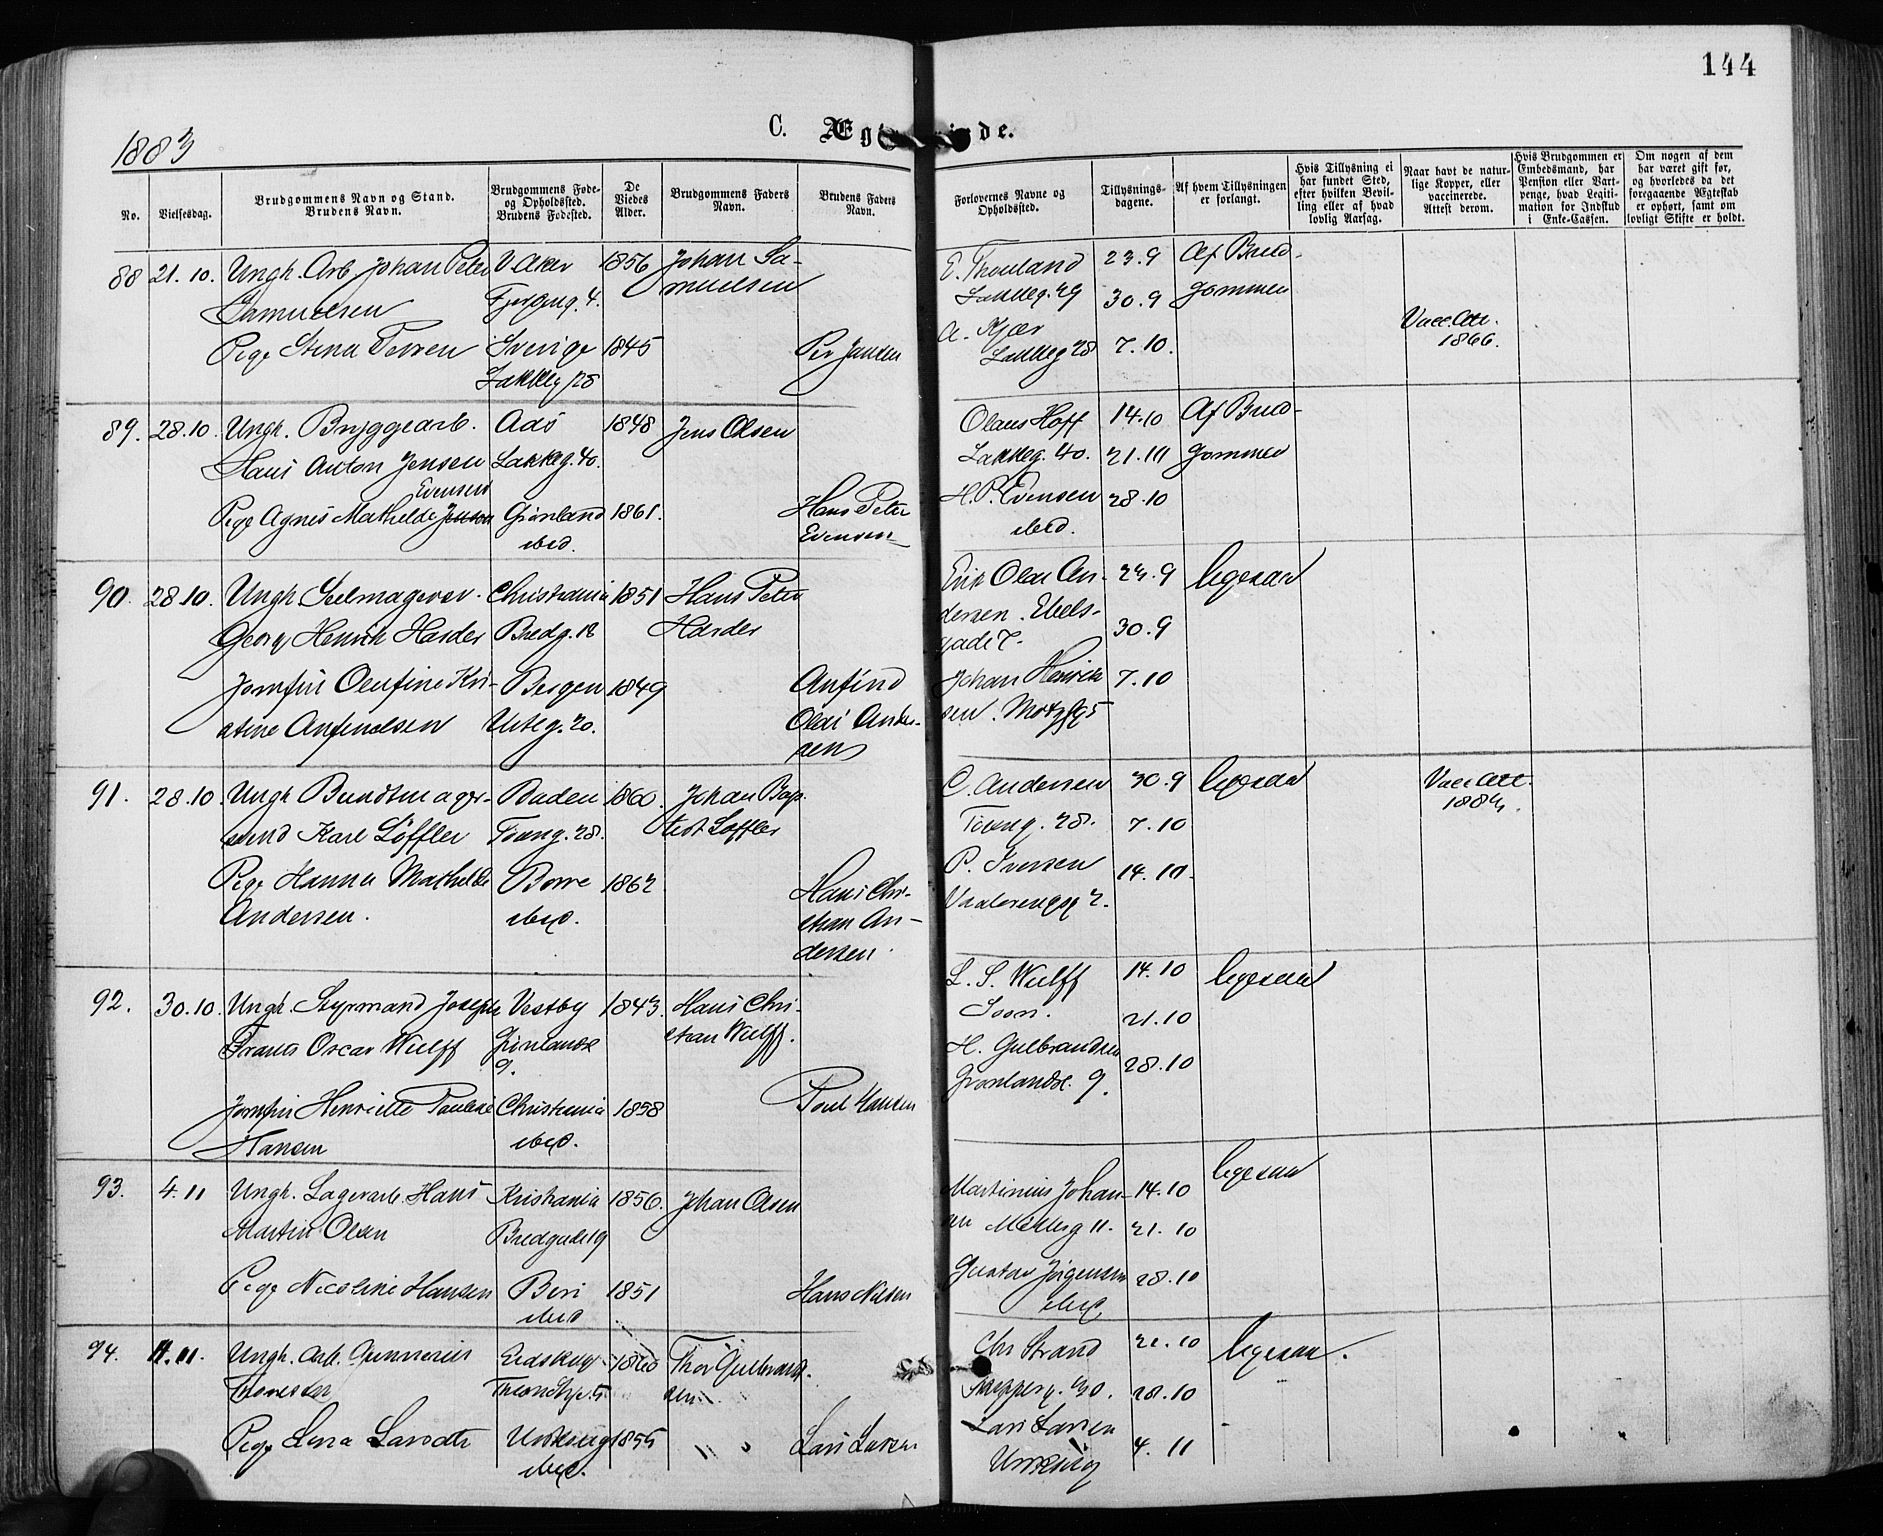 144
1883
C. Ægt
de.
No.
Vielsesdag.
Brudgommens Navn og Stand.
Brudens Navn.
Brudgommens Føde-
og Opholdssted.
Brudens Fødested.
De
Viedes
Alder.
Brudgommens Faders
Navn.
Brudens Faders
Navn.
Forlovernes Navne og
Opholdssted.
Tillysnings-
dagene.
Af hvem Tillysningen
er forlangt.
Hvis Tillysning ei
har fundet Sted,
efter hvilken Bevil-
ling eller af hvad
lovlig Aarsag.
Naar havt de natur-
lige Kopper, eller
vaccinerede.
Attest derom.
Hvis Brudgommen er
Embedsmand, har
Pension eller Vart-
penge, hvad Legiti-
mation for Indskud
i Enke-Cassen.
Om nogen af dem
har været gift før,
og hvorledes da det
foregaaende Ægteskab
er ophørt, samt om
lovligt Skifte er holdt.
88 21.10. Ungk. Arb. Johan Peter V. Aker 1856 Johan Sa-
Samuelsen 4. muelsen
Pige Stena Sverige 1845 Per Jansen
Lakkeg 28
E. 23.9 Af Brud-
Lakkeg. 29 30.9 gommen
A. Kjær
Lakkeg 28 7.10.
Vacc.Att.
1866.
89. 28.10. Ungk. Bryggearb. Aas 1848 Jens Olsen
Hans Anton Jensen Lakkeg. 40.
Evensen
Pige Agnes Mathilde Jensen Grønland 1861. Hans Peter
ibid. Evensen
Olaus Hoff 14.10 Af Brud-
Lakkeg. 40. 21.10 gommen
H. P. Evensen 28.10
ibid.
90. 28.10. Ungk. Seilmagersv. Christiania 1851 Hans Peter
Georg Henrik Harder Bredg. 18 Harder
Jomfru Olufine Kri- Bergen 1849 Anfind
stine Anfindsen Urteg. 20. Olai Ander-
sen
Erik Olai An- 23.9 ligesaa
dersen. Ebels-
gade 7. 30.9
Johan Henrik 7.10
sen. 5
91. 28.10. Ungk. Bundtmager- Baden 1860. Johan Bap-
svend Karl Löffler 28. tist Löffler
Pige Hanna Mathilde Borre 1862 Hans Chri-
Andersen. ibid. stian An-
dersen.
C. Andersen 30.9 ligesaa Vacc.Att.
28. 7.10 1883.
P. Iversen 14.10.
Vaalerengg 2.
92. 30.10. Ungk. Styrmand Joseph Vestby 1843. Hans Chri-
Frants Oscar Wulff Grønlandsl. stian Wulff.
9.
Jomfru Henriette Pauline Christiania 1858 Poul Hansen
Hansen ibid.
L. S. Wulff 14.10 ligesaa
Soon. 21.10
H. Gulbrandsen 28.10
Grønlandsl. 9.
93. 4.11 Ungk. Lagerarb. Hans Kristiania 1856. Johan Olsen
Martin Olsen Bredgade 19
Pige Nicoline Hansen Biri 1851 Hans Nilsen
ibid
Martinius Johan- 14.10 ligesaa
sen 11. 21.10
Gustav Jørgensen 28.10
ibid.
94. 11.11. Ungk. Arb. Gunnerius Eidskog 1860 Thor Gulbrand-
Thoresen 5 sen
Pige Lena Larsdtr Urskoug 1855 Lars Larsen
ibid.
Chr Strand 21.10 ligesaa.
28.10
Lars Larsen
Urskoug 4.11